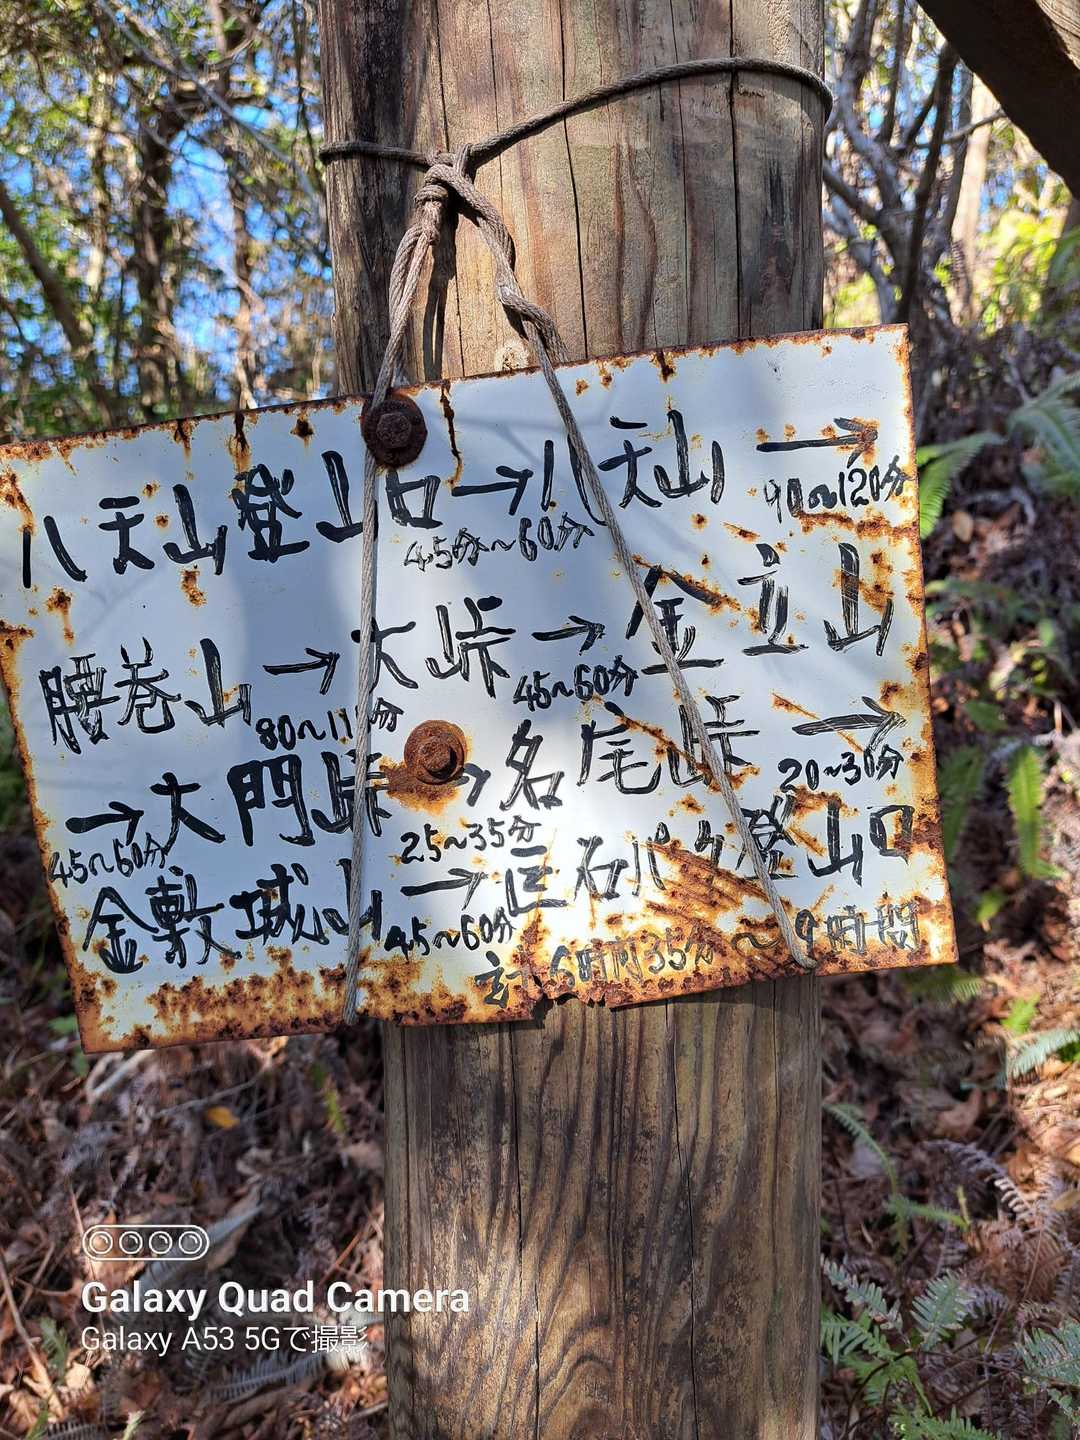 八天山登山口→八天山→
45分~60分 90~120分
腰巻山→大峠→金立山
80~11 分 45~60分
→大門峠→名尾峠→
45~60分 25~35分 20~30分
金敷城山→巨石パーク登山口
45~60分
計6時間35分~9時間
Galaxy Quad Camera
Galaxy A53 5Gで撮影